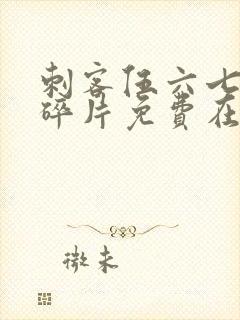 刺客伍六七
碎片免費在
微未